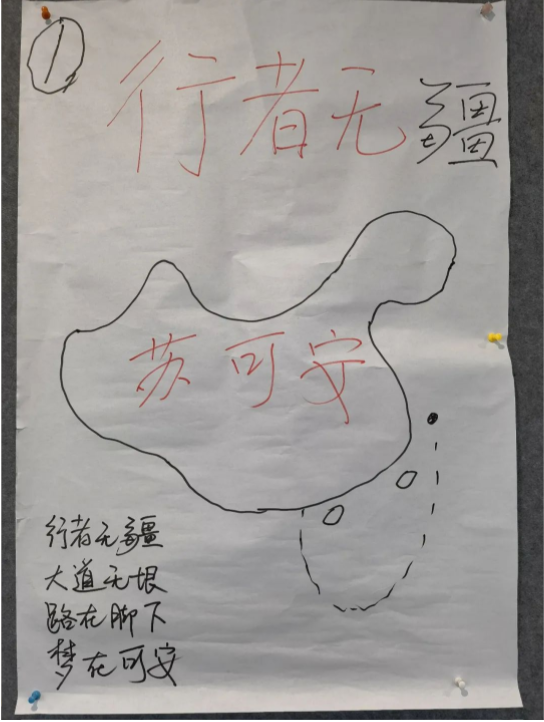 1
行者无疆
苏可安
行者无疆
大道无垠
路在脚下
梦在可安